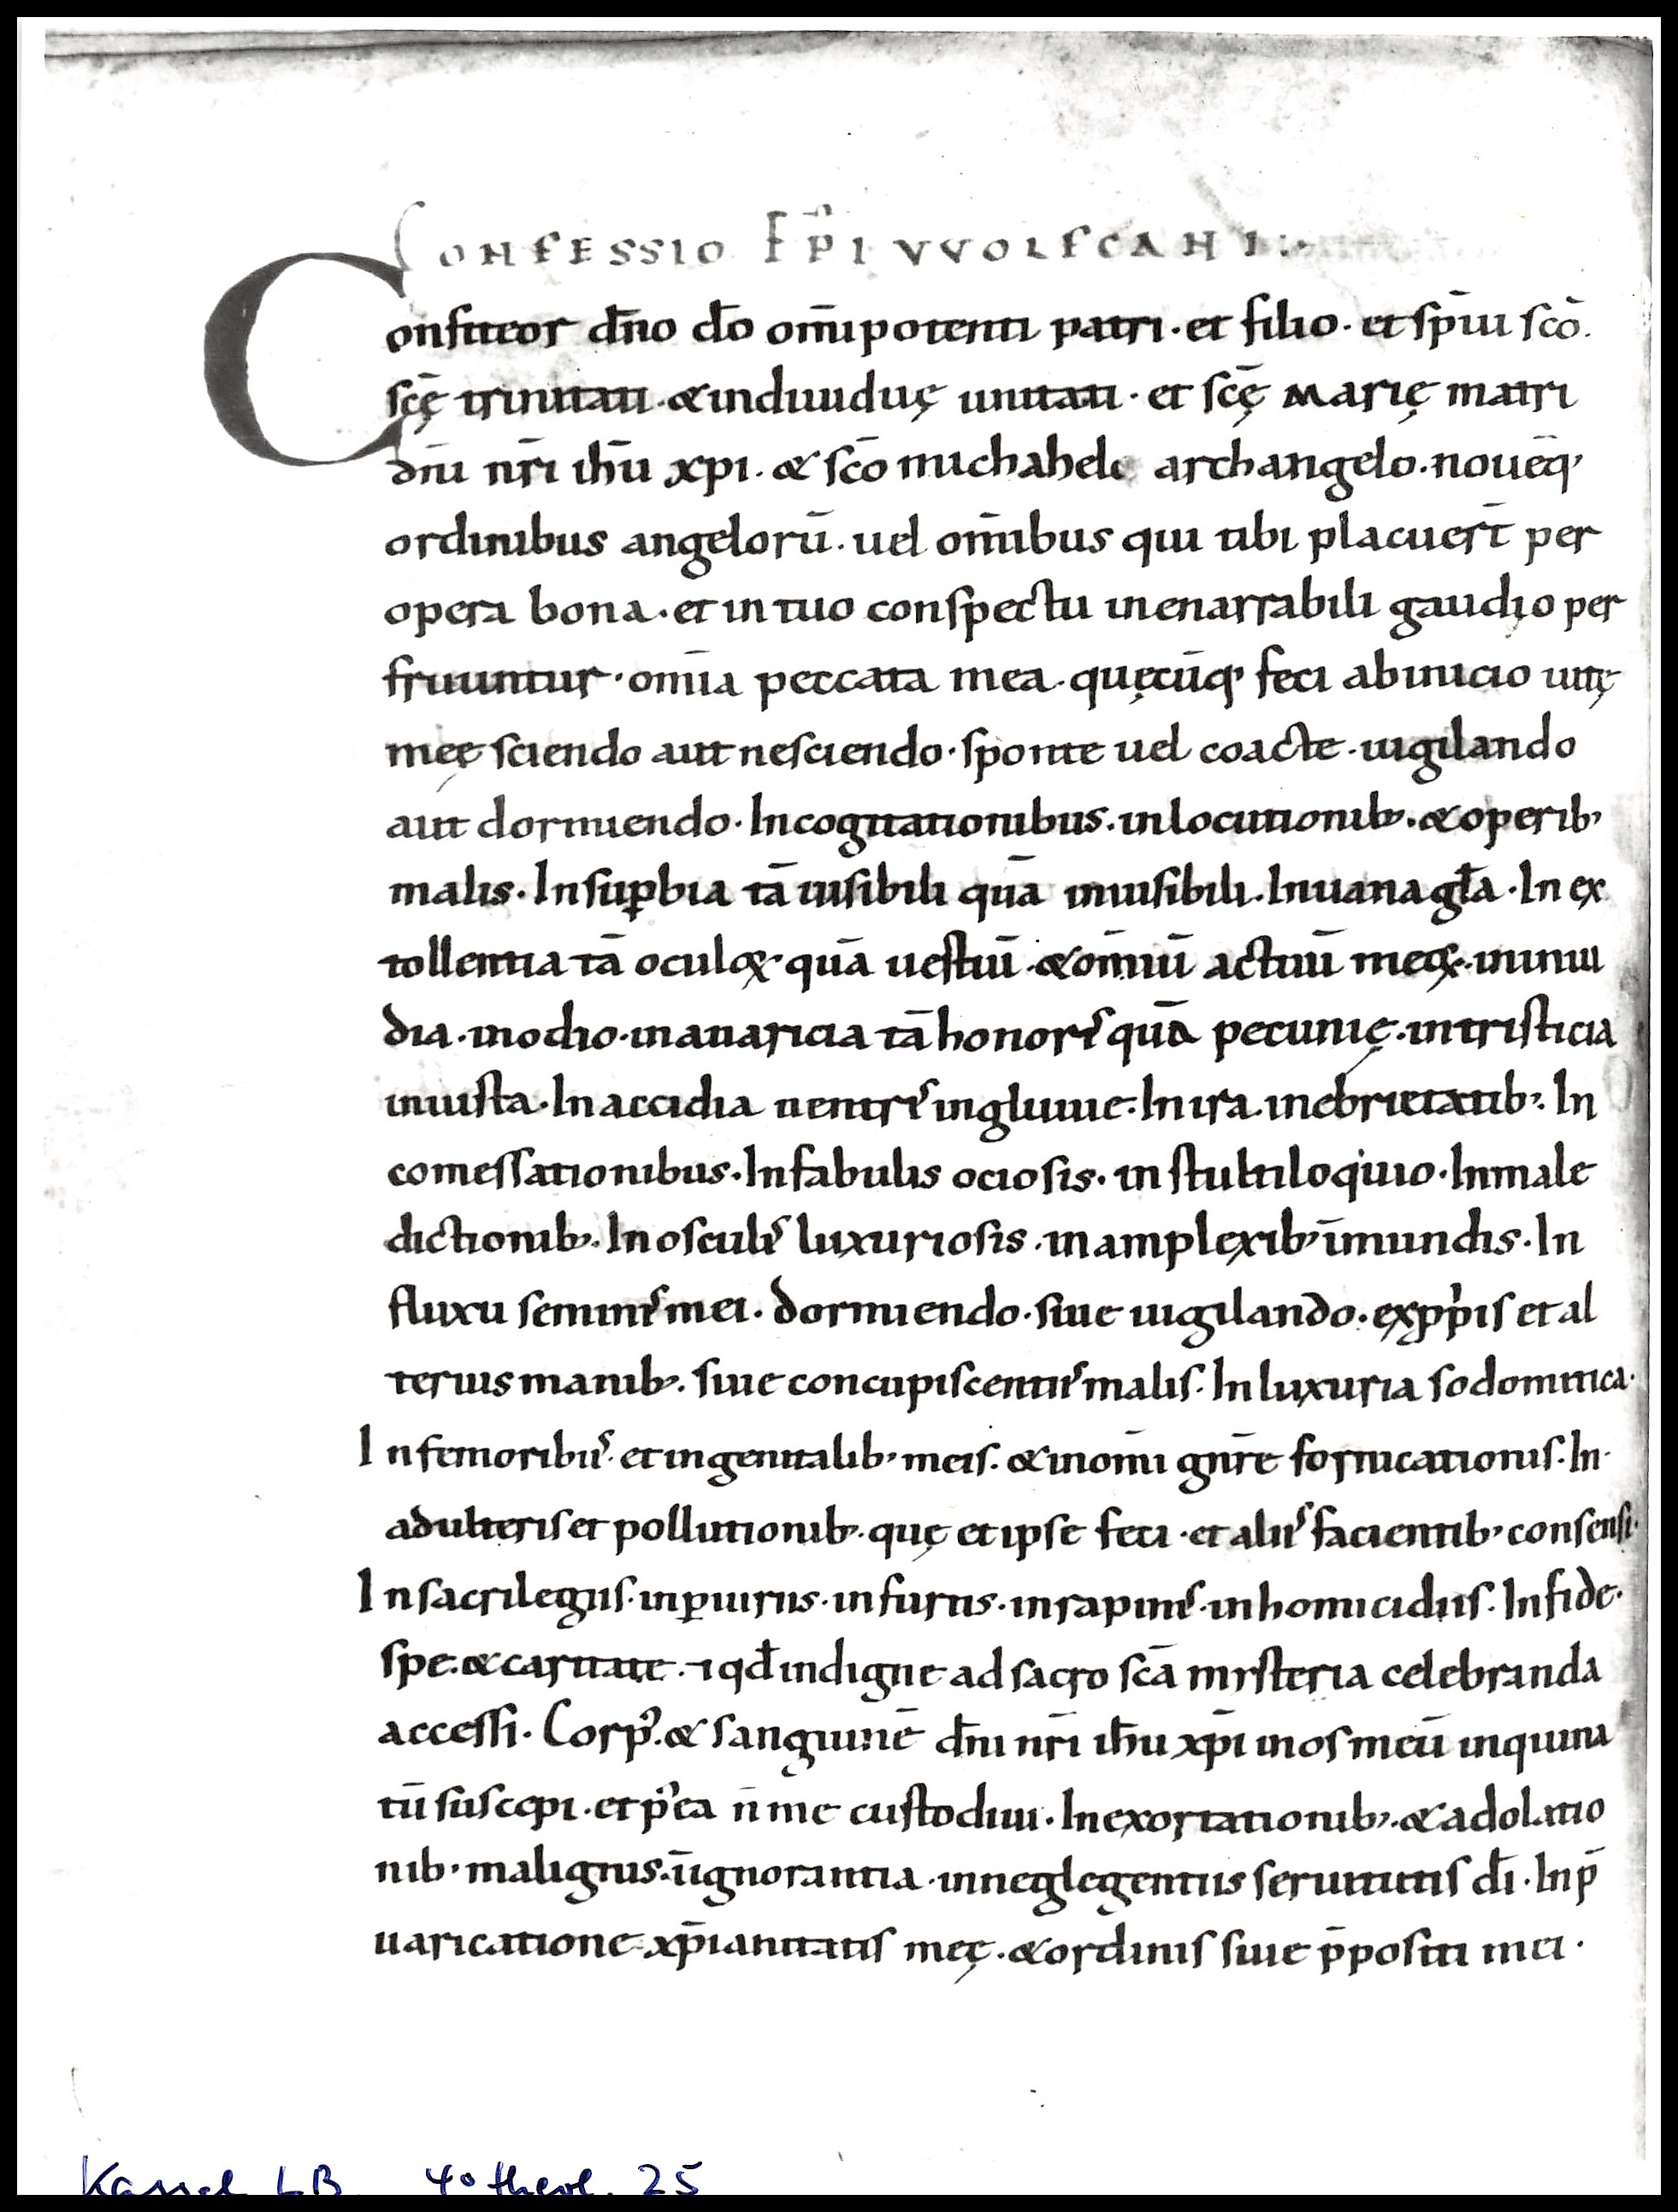 CONFESSIO EP̅I VVOLFCANI:·
Confiteor dn̅o do̅ om̅ipotenti patri · et filio · et sp̅ui sco̅.
sce̅ę trinitati · & indiuiduę unitati · et sce̅ę MARIę matri
dn̅i nr̅i ihu̅ xpi. & sco̅ michahele archangelo. noue̅q;
ordinibus angeloru̅. uel om̅ibus qui tibi placuer̅t per
opera bona · et in tuo conspectu inenarrabili gaudio per
fruuntur · om̅ia peccata mea. quęcu̅q; feci ab inicio uitę
meę sciendo aut nesciendo · sponte uel coacte · uigilando
aut dormiendo · In cogitationibus. in locutionib; . & operib;
malis · In sup̱bia ta̅ uisibili qua̅ inuisibili. In uana gła · In ex
tollentia ta̅ oculoꝝ qua̅ uestiu̅ · & om̅iu̅ actuu̅ meoꝝ · in inui
dia · in odio · in auaricia ta̅ honoris qua̅ pecunię · in tristicia
iniusta · In accidia uentris ingluuie · In ira. in ebrietatib; . In
comessationibus · In fabulis ociosis · in stultiloquio · In male
dictionib; . In osculis luxuriosis · in amplexib; i̅mundis · In
fluxu seminis mei · dormiendo · siue uigilando. ex pp̍is et al
terius manib; . siue concupiscentiis malis · In luxuria sodomitica ·
In femoribus · et in genitalib; meis · & in om̅i gnr̅e fornicationis · In ·
adulteris et pollutionib; . quę et ipse feci · et aliis facientib; consensi ·
In sacrilegiis · in ꝑiuriis · in furtis · in rapinis · in homicidiis · In fide ·
spe · & caritate · ⁊ qđ indigne ad sacro sca̅ misteria celebranda
accessi · Corp᾿. & sanguine̅ dn̅i nr̅i ih̅u xp̅i in os meu̅ inquina
tu̅ suscepi · et p᾿ea n̅ me custodiui · In exortationib; . & adolatio
nib; malignis · i̅ ignorantia · in neglegentiis seruitutis di̅ · In p̅
uaricatione xp̅ianitatis meę · & ordinis siue p̅positi mei ·
Kassel LB 4° theol. 25